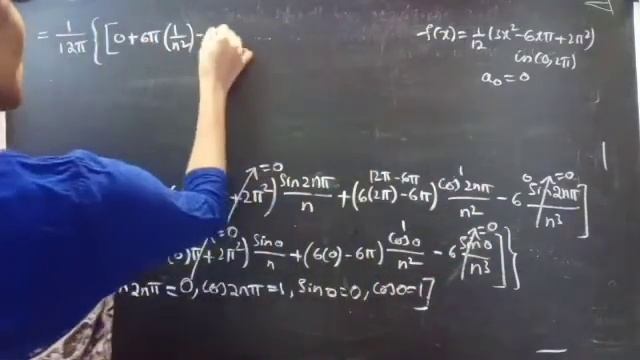 = 1/12π { [ 0 + 6π (1/n²) -
f(x) = 1/12 (3x² - 6xπ + 2π²)
in (0, 2π)
a₀ = 0
=0 12π - 6π 1 0 =0
+ 2π²) sin2nπ/n + (6(2π) - 6π) cos2nπ/n² - 6 sin2nπ/n³ ]
=0 1 =0
)π + 2π²) sin0/n + (6(0) - 6π) cos0/n² - 6 sin0/n³ ] }
2nπ = 0, cos2nπ = 1, sin0 = 0, cos0 = 1]